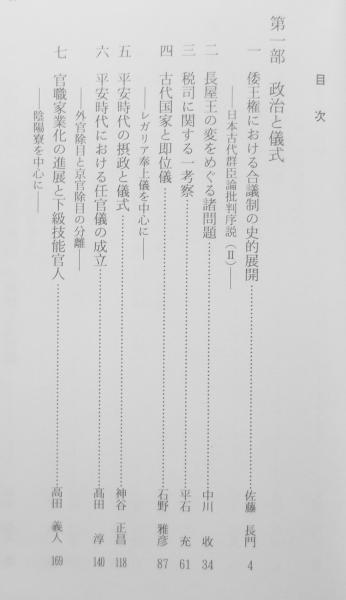 目次
第一部 政治と儀式
一 倭王権における合議制の史的展開………佐藤 長門 4
――日本古代群臣論批判序説（Ⅱ）――
二 長屋王の変をめぐる諸問題………中川 收 34
三 税司に関する一考察………平石 充 61
四 古代国家と即位儀………石野 雅彦 87
――レガリア奉上儀を中心に――
五 平安時代の摂政と儀式………神谷 正昌 118
六 平安時代における任官儀の成立………髙田 淳 140
――外官除目と京官除目の分離――
七 官職家業化の進展と下級技能官人………高田 義人 169
――陰陽寮を中心に――